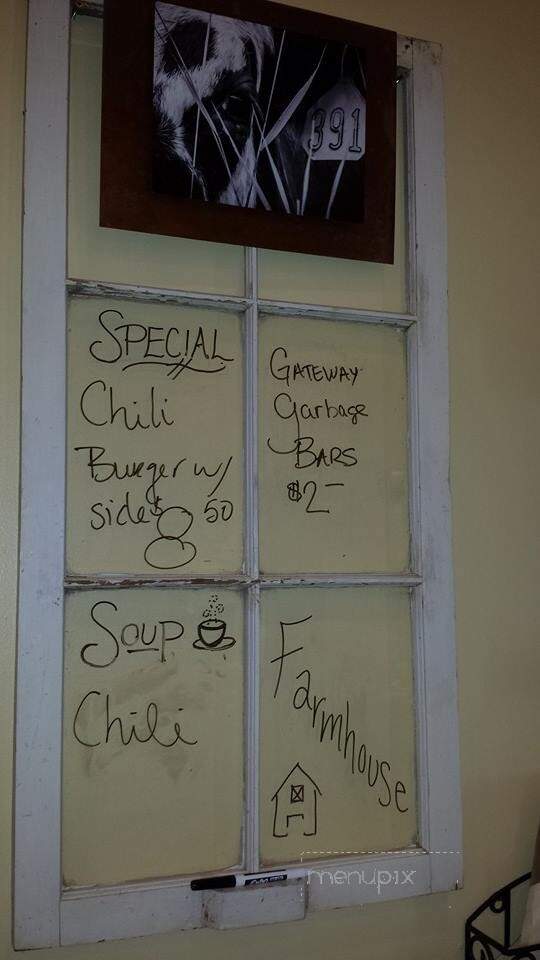 391
SPECIAL
Chili
Burger w/
side $8.50
GATEWAY
Garbage
BARS
$2-
SOUP
Chili
Farmhouse
menupix